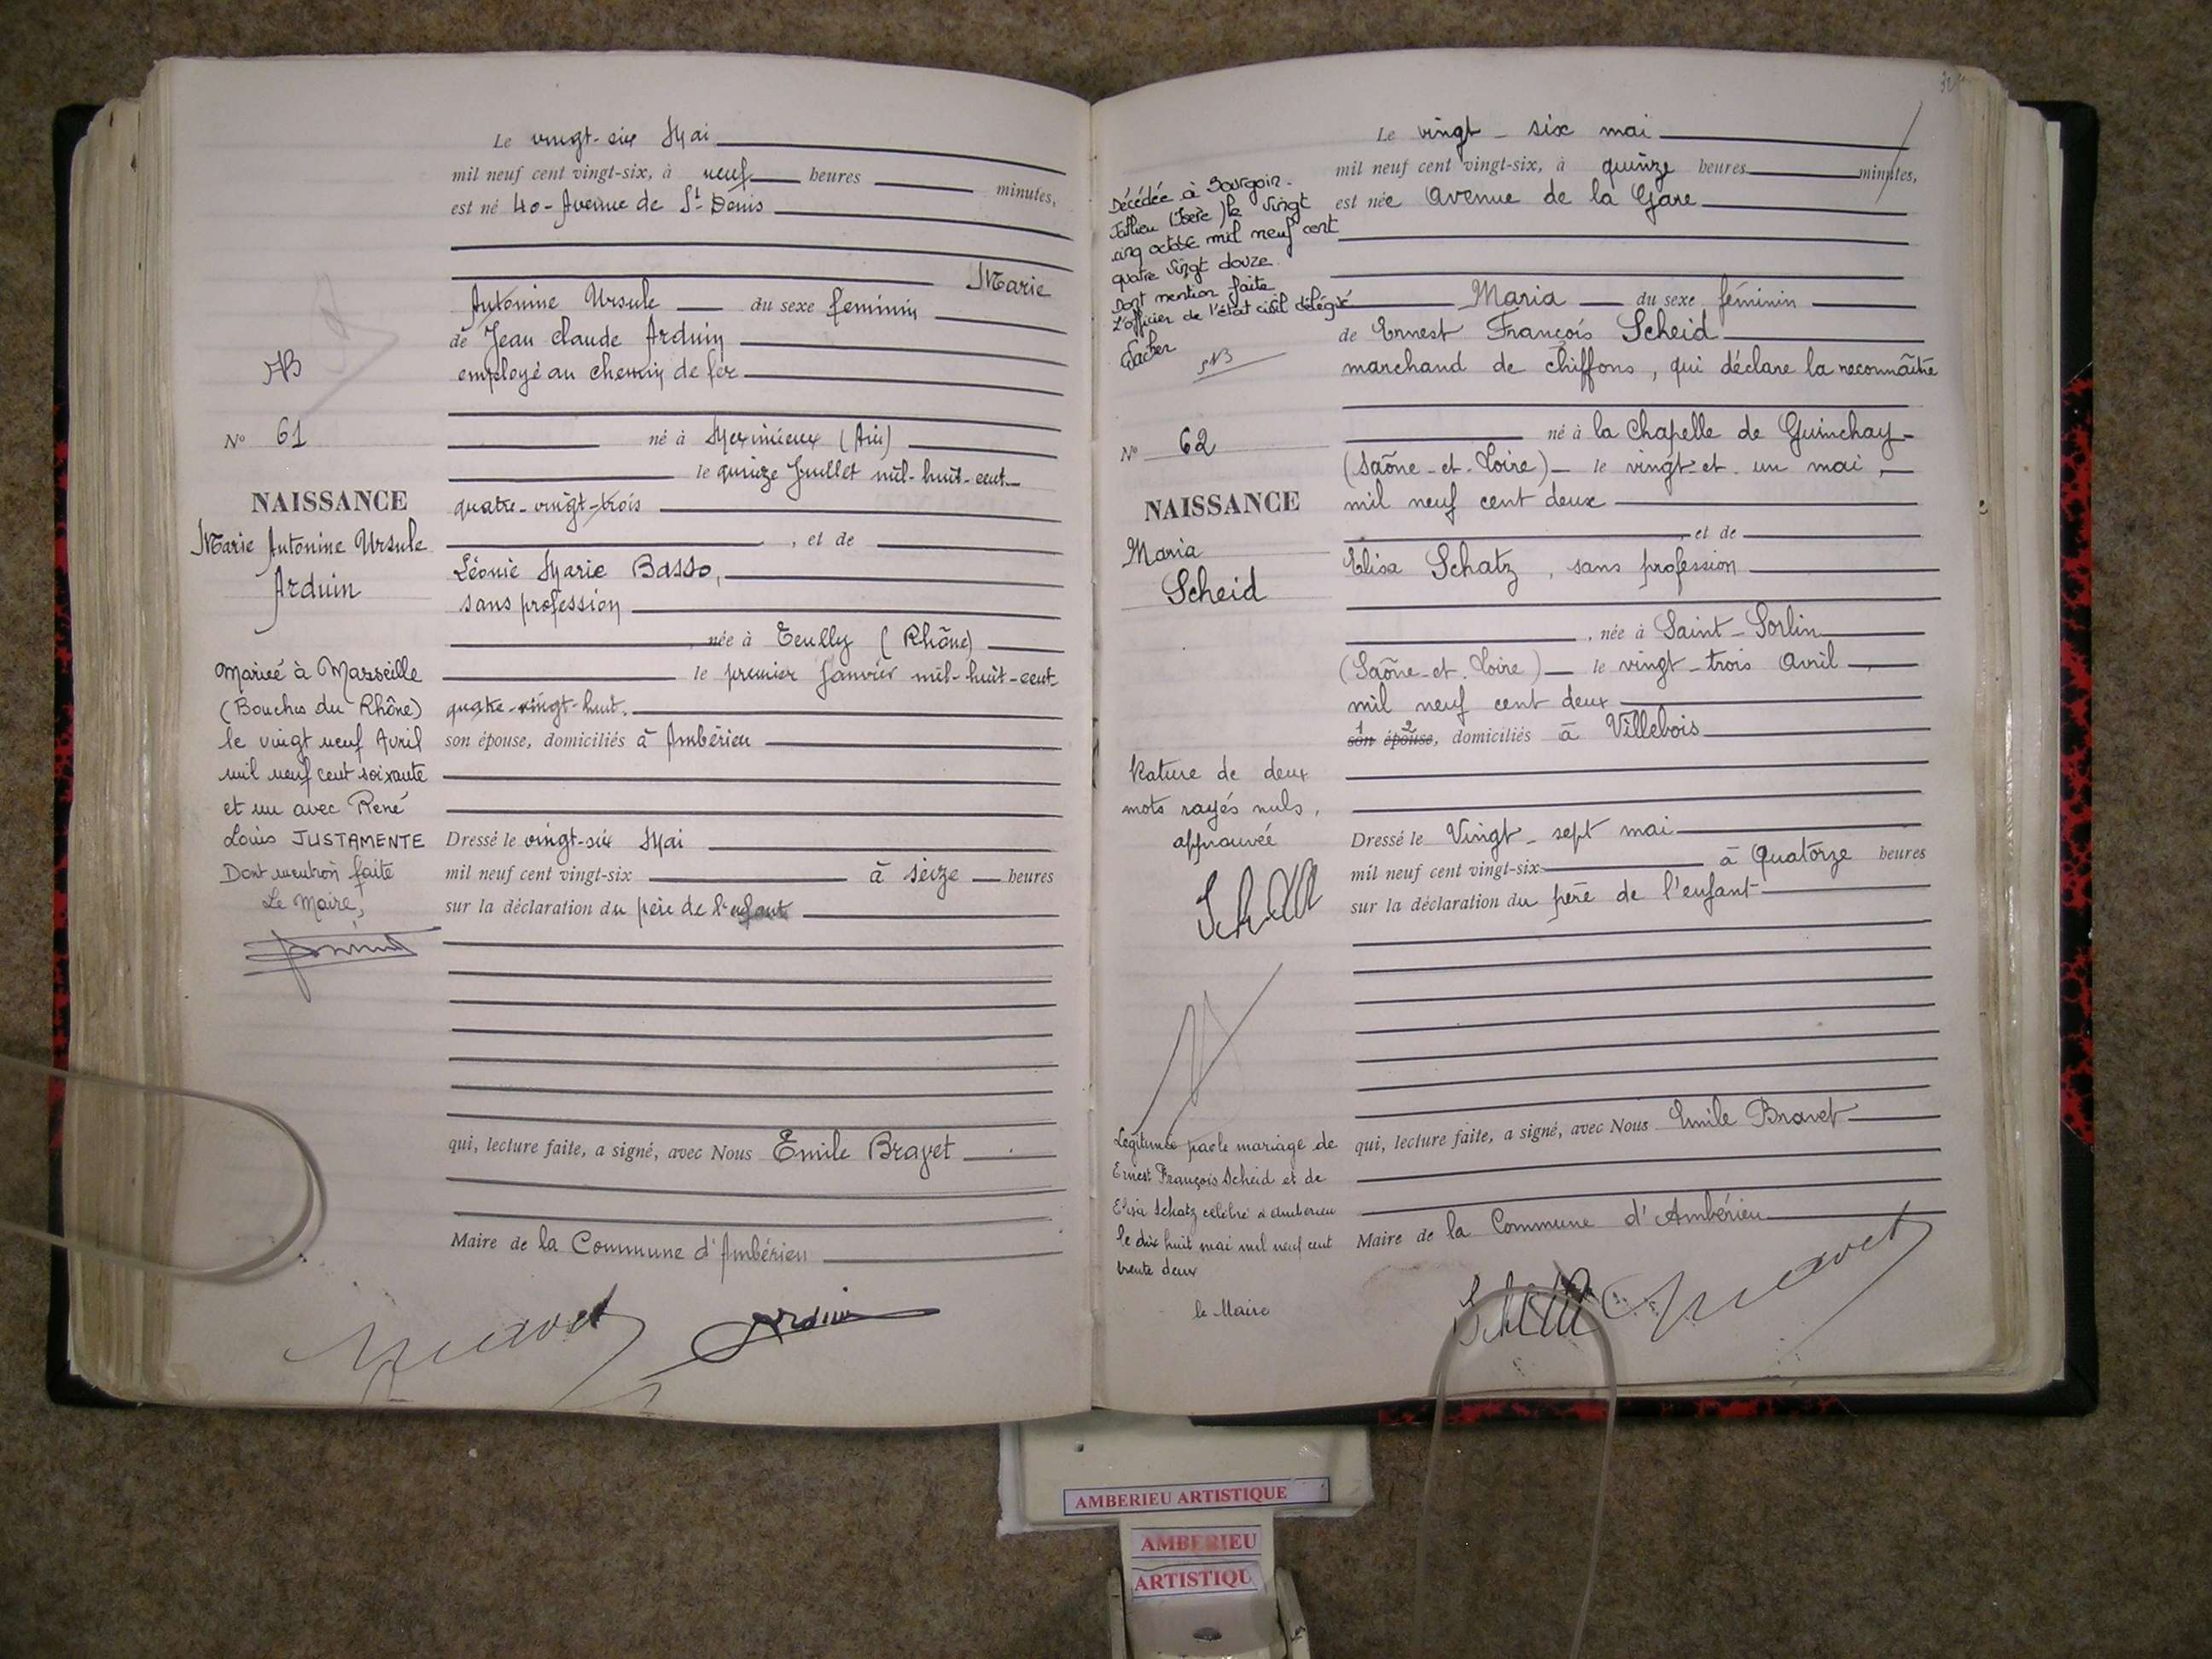 Le vingt-six Mai
mil neuf cent vingt-six, à neuf heures minutes,
est né 40 - Avenue de St Denis
Marie
Antonine Ursule du sexe féminin
de Jean Claude Arduin
employé au chemin de fer
né à Meximieux (Ain)
le quinze Juillet mil-huit-cent-
quatre-vingt-trois
, et de
Léonie Marie Basso,
sans profession
née à Ecully (Rhône)
le premier Janvier mil-huit-cent-
quatre-vingt-huit.
son épouse, domiciliés à Ambérieu
Dressé le vingt-six Mai
mil neuf cent vingt-six à seize heures
sur la déclaration du père de l'enfant
qui, lecture faite, a signé, avec Nous Emile Bravet
Maire de la Commune d'Ambérieu
Bravet Arduin
AB
No 61
NAISSANCE
Marie Antonine Ursule
Arduin
Mariée à Marseille
(Bouches du Rhône)
le vingt neuf Avril
mil neuf cent soixante
et un avec René
Louis JUSTAMENTE
Dont mention faite
Le Maire,
Le vingt - six mai
mil neuf cent vingt-six, à quinze heures minutes,
est née Avenue de la Gare
Maria du sexe féminin
de Ernest François Scheid
marchand de chiffons, qui déclare la reconnaître
né à la Chapelle de Guinchay -
(Saône-et-Loire) le vingt et un mai,
mil neuf cent deux
, et de
Elisa Schatz, sans profession
, née à Saint-Sorlin
(Saône-et-Loire) le vingt-trois Avril
mil neuf cent deux
1 2
son épouse, domiciliés à Villebois
Dressé le Vingt-sept mai
mil neuf cent vingt-six à Quatorze heures
sur la déclaration du père de l'enfant
qui, lecture faite, a signé, avec Nous Emile Bravet
Maire de la Commune d'Ambérieu
Scheid Bravet
Décédée à Bourgoin-
Jallieu (Isère) le vingt
cinq octobre mil neuf cent
quatre vingt douze
Dont mention faite
L'officier de l'état civil délégué
No 62
NAISSANCE
Maria
Scheid
Rature de deux
mots rayés nuls,
approuvée
Scheid
Légitimée par le mariage de
Ernest François Scheid et de
Elisa Schatz célébré à Ambérieu
le dix huit mai mil neuf cent
trente deux
le Maire
AMBERIEU ARTISTIQUE
AMBERIEU
ARTISTIQU